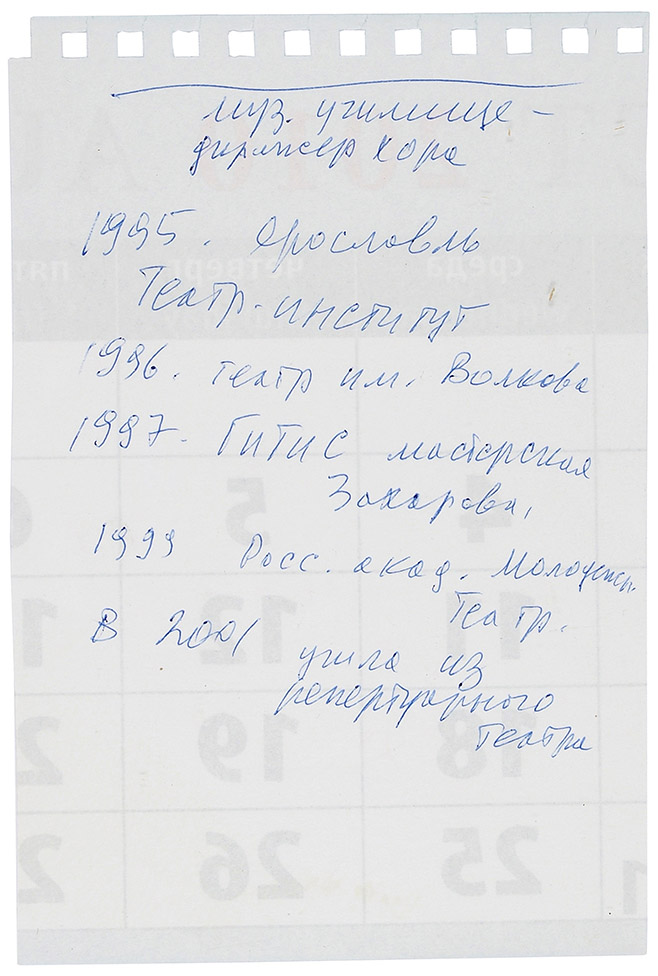 муз. училище –
дирижер хора
1995. Ярославль
Театр. институт
1996. театр им. Волкова
1997. ГИТИС мастерская
Захарова,
1999 Росс. акад. Молодежн.
Театр.
В 2001
ушла из
репертуарного
театра
среда четверг пят
4 5 6
11 12 1
18 19 2
25 26 2
1